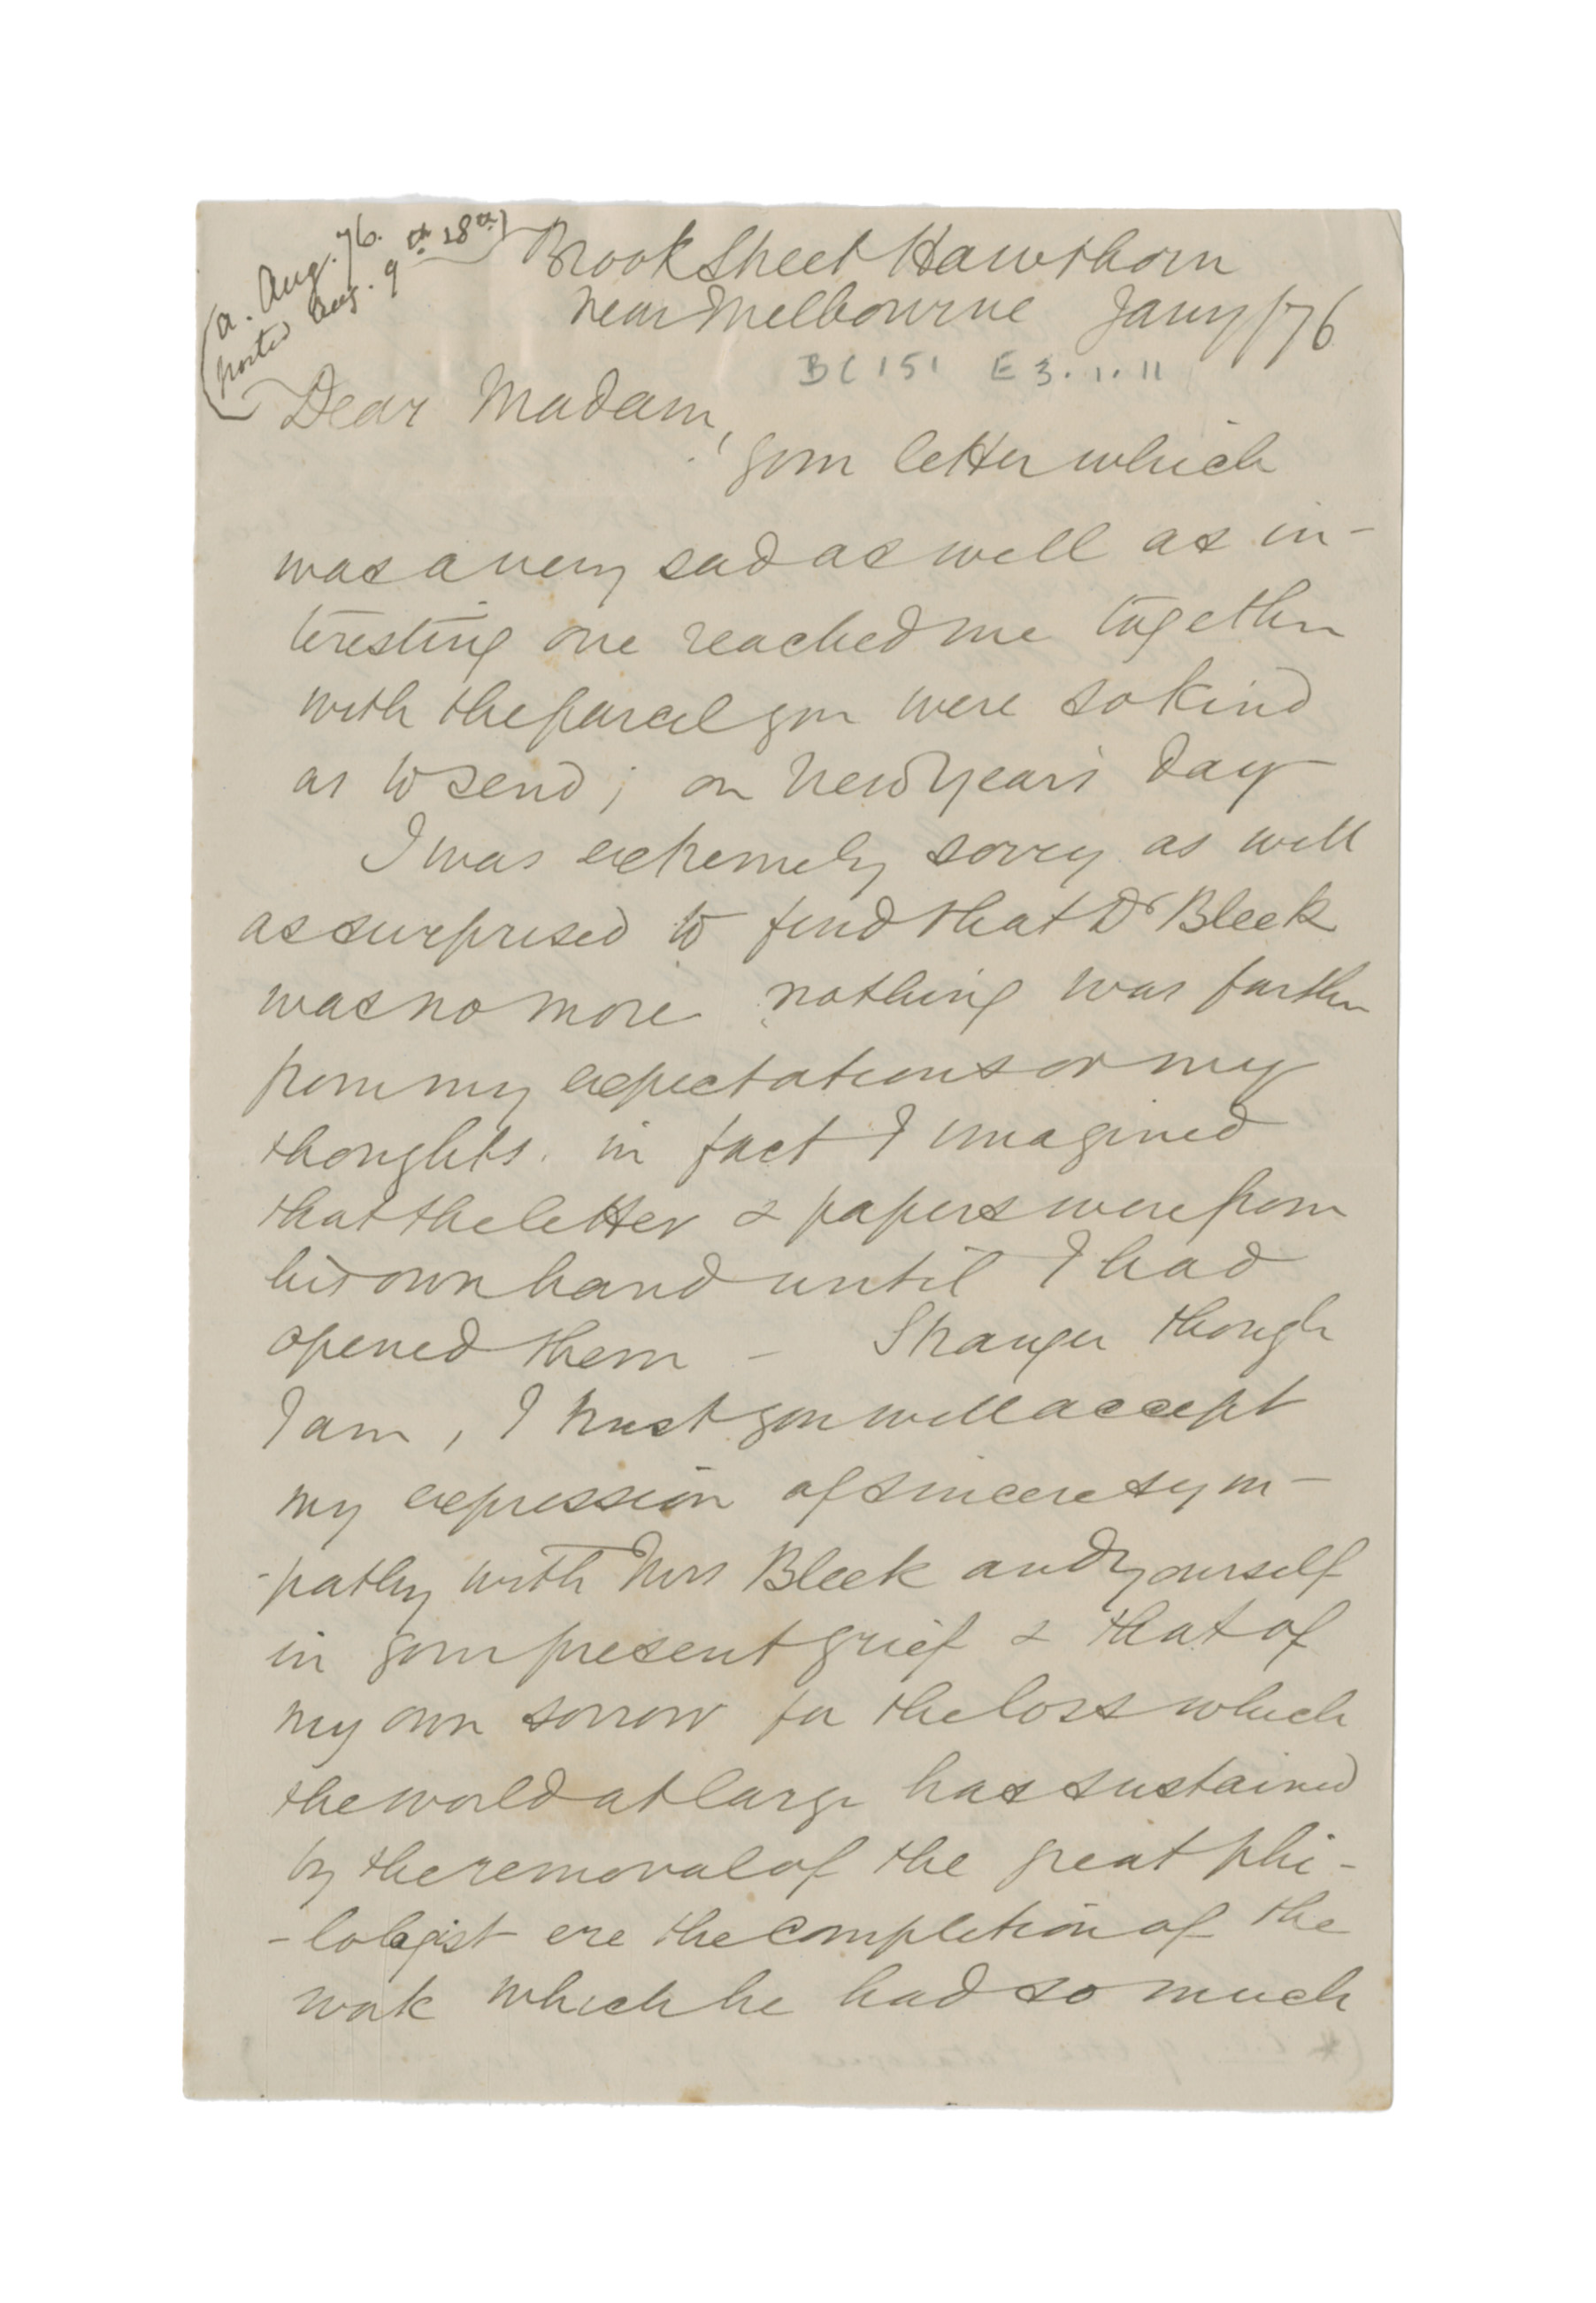 (a. Aug. 76.
posted Aug. 9th 28th)
Brook Street Hawthorn
near Melbourne Jany/76
BC 151 E 3.1.11
Dear Madam,
your letter which
was a very sad as well as in-
teresting one reached me together
with the parcel you were so kind
as to send; on New Year's day
I was extremely sorry as well
as surprised to find that Dr Bleek
was no more nothing was farther
from my expectations or my
thoughts. in fact I imagined
that the letter & papers were from
his own hand until I had
opened them - Stranger though
I am, I trust you will accept
my expression of sincere sym-
-pathy with Mrs Bleek and yourself
in your present grief & that of
my own sorrow for the loss which
the world at large has sustained
by the removal of the great phi-
-lologist ere the completion of the
work which he had so much